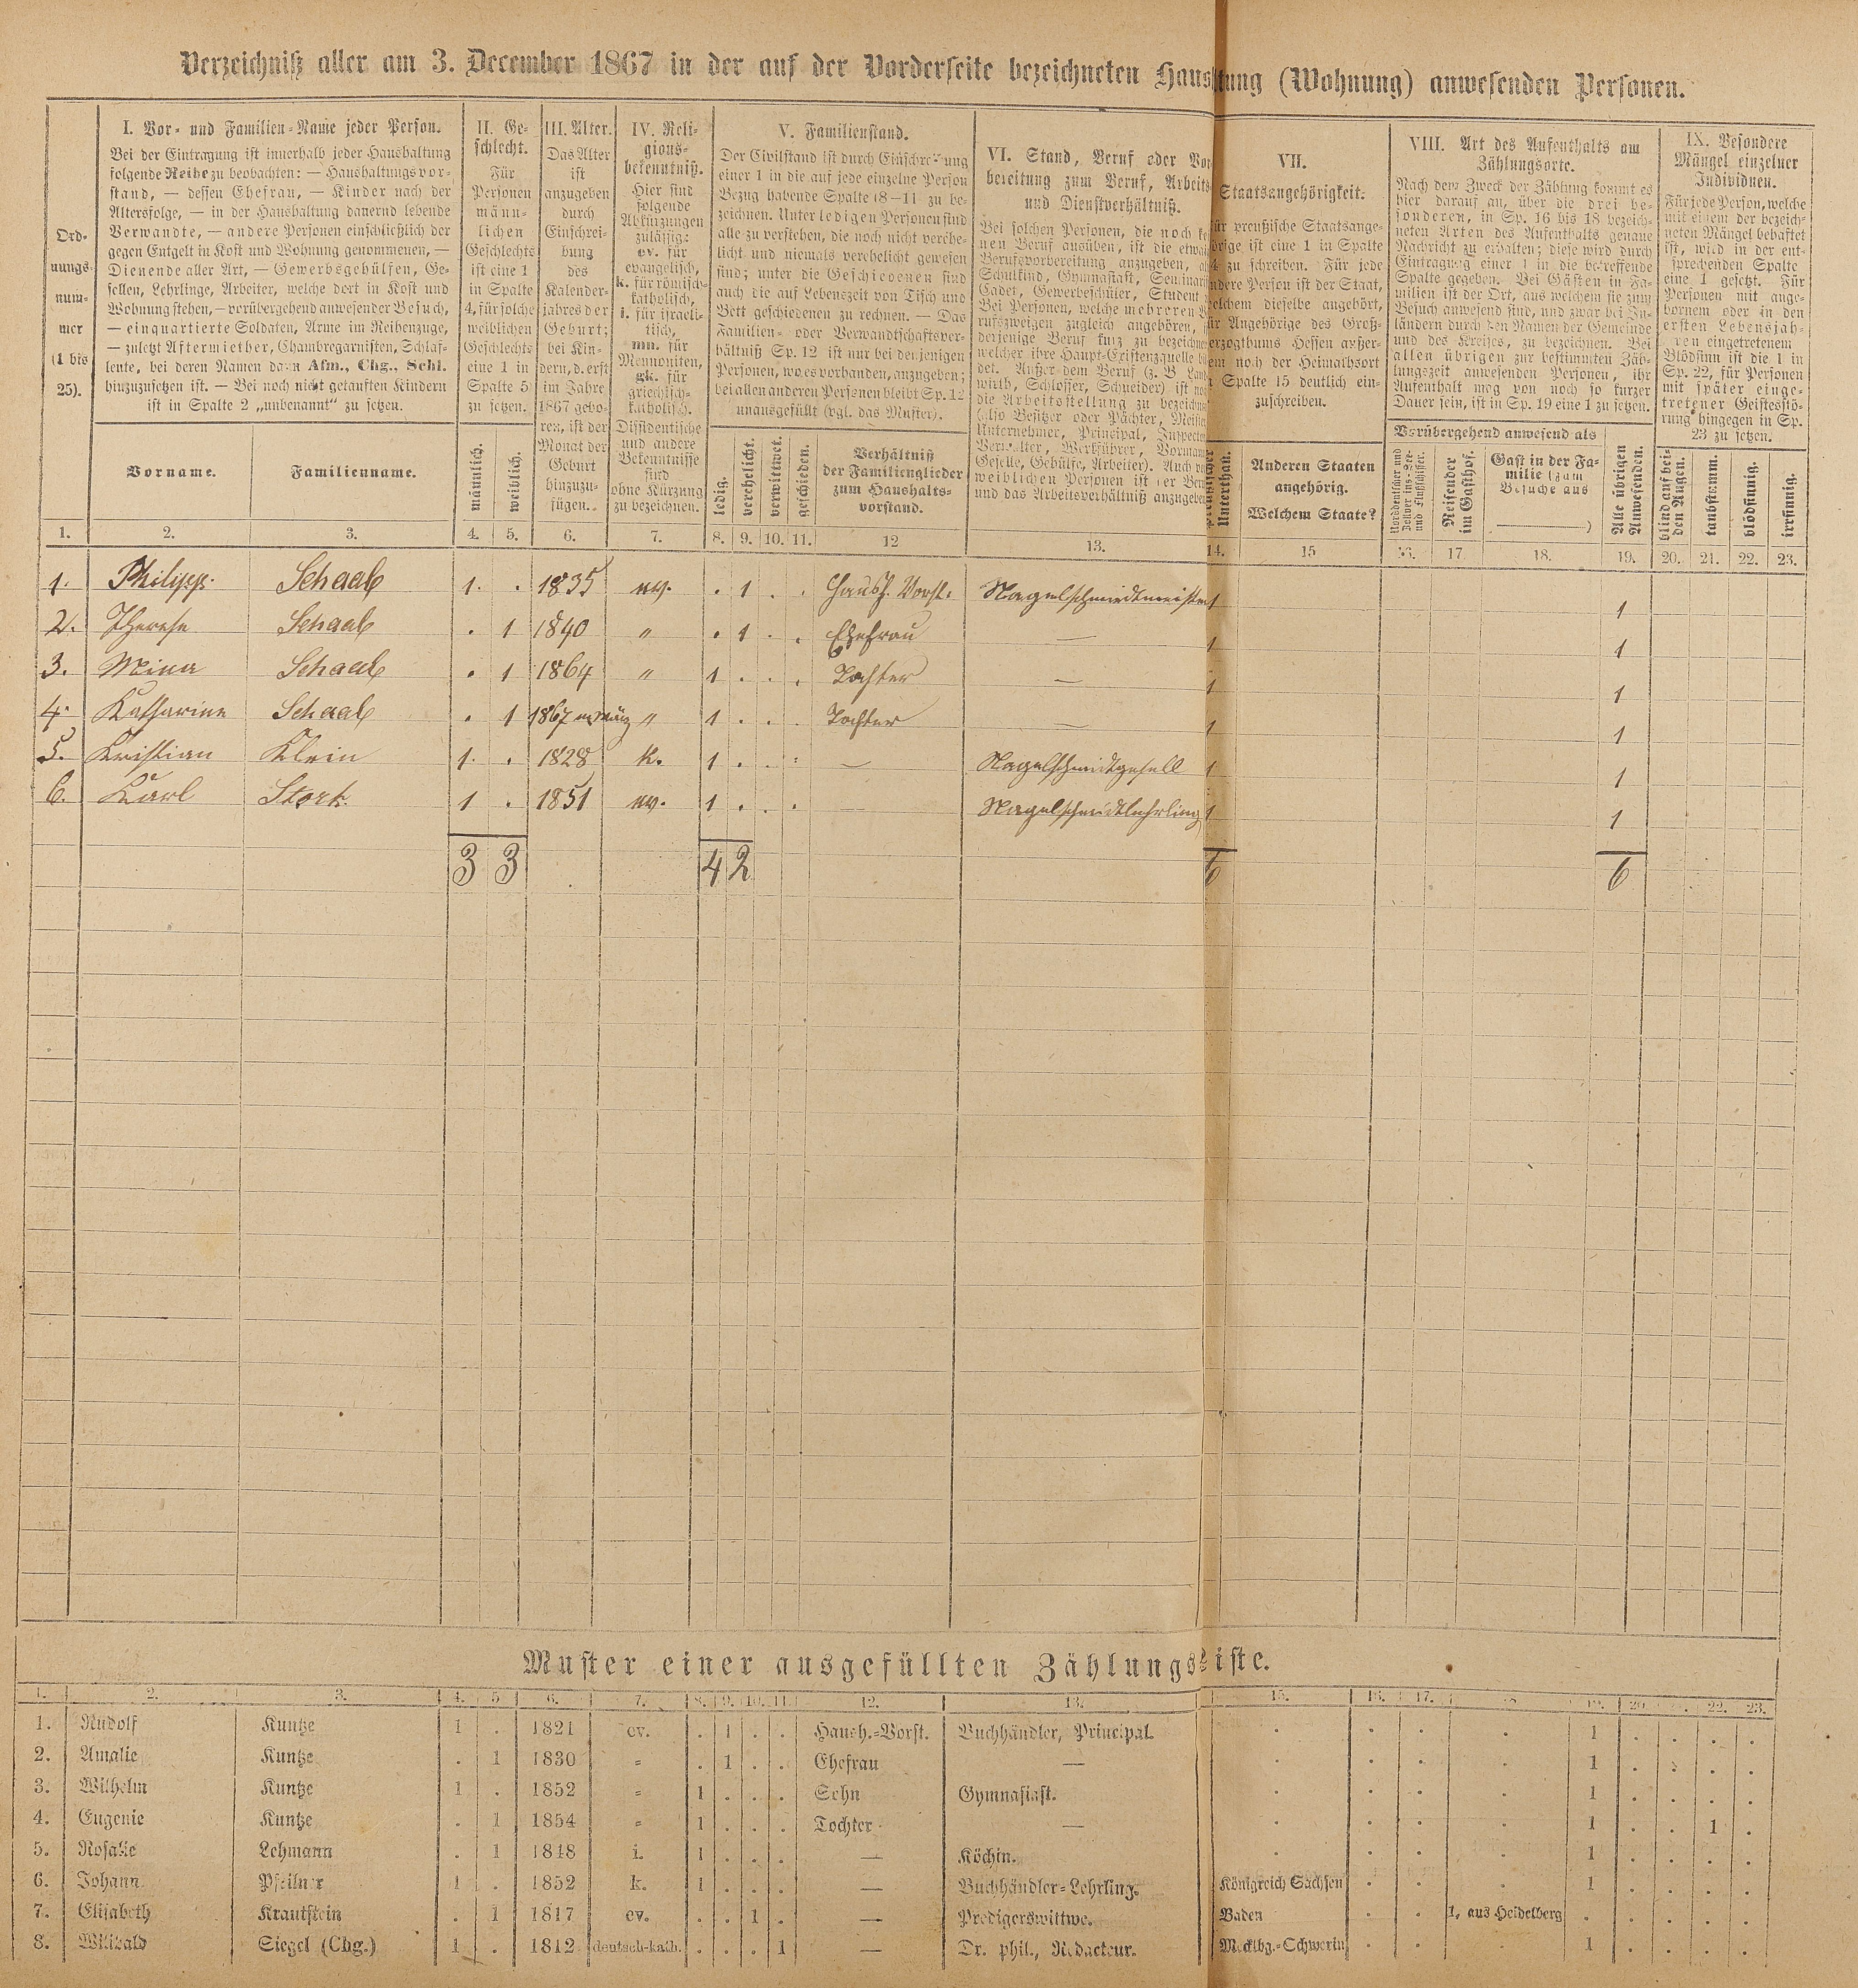 Verzeichniß aller am 3. December 1867 in der auf der Vorderseite bezeichneten Haus tung (Wohnung) anwesenden Personen.
Ord-
nungs-
num-
mer
(1 bis
25).
I. Vor- und Familien-Name jeder Person.
Bei der Eintragung ist innerhalb jeder Haushaltung
folgende Reihe zu beobachten: — Haushaltungsvor-
stand, — dessen Ehefrau, — Kinder nach der
Altersfolge, — in der Haushaltung dauernd lebende
Verwandte, — andere Personen einschließlich der
gegen Entgelt in Kost und Wohnung genommenen, —
Dienende aller Art, — Gewerbsgehülfen, Ge-
sellen, Lehrlinge, Arbeiter, welche dort in Kost und
Wohnung stehen, — vorübergehend anwesender Besuch,
— einquartierte Soldaten, Arme im Reihenzuge,
— zuletzt Aftermiether, Chambregarnisten, Schlaf-
leute, bei deren Namen dann Afm., Chg., Schl.
hinzuzusetzen ist. — Bei noch nicht getauften Kindern
ist in Spalte 2 „unbenannt“ zu setzen.
Vorname.
Familienname.
II. Ge-
schlecht.
Für
Personen
männ-
lichen
Geschlechts
ist eine 1
in Spalte
4, für solche
weiblichen
Geschlechts
eine 1 in
Spalte 5
zu setzen.
männlich.
weiblich.
III. Alter.
Das Alter
ist
anzugeben
durch
Einschrei-
bung
des
Kalender-
jahres der
Geburt;
bei Kin-
dern, d. erst
im Jahre
1867 gebo-
ren, ist der
Monat der
Geburt
hinzuzu-
fügen.
IV. Reli-
gions-
bekenntniß.
Hier sind
folgende
Abkürzungen
zulässig:
ev. für
evangelisch,
k. für römisch-
katholisch,
i. für israeli-
tisch,
mn. für
Mennoniten,
gk. für
griechisch-
katholisch.
Dissidentische
und andere
Bekenntnisse
sind
ohne Kürzung
zu bezeichnen.
V. Familienstand.
Der Civilstand ist durch Einschreibung
einer 1 in die auf jede einzelne Person
Bezug habende Spalte (8—11) zu be-
zeichnen. Unter ledigen Personen sind
alle zu verstehen, die noch nicht verehe-
licht und niemals verehelicht gewesen
sind; unter die Geschiedenen sind
auch die auf Lebenszeit von Tisch und
Bett geschiedenen zu rechnen. — Das
Familien- oder Verwandtschaftsver-
hältniß Sp. 12 ist nur bei denjenigen
Personen, wo es vorhanden, anzugeben;
bei allen anderen Personen bleibt Sp. 12
unausgefüllt (vgl. das Muster).
ledig.
verehelicht.
verwittwet.
geschieden.
Verhältniß
der Familienglieder
zum Haushalts-
vorstand.
VI. Stand, Beruf oder Vor
bereitung zum Beruf, Arbeits
und Dienstverhältniß.
Bei solchen Personen, die noch
nen Beruf ausüben, ist die etwa
Berufsvorbereitung anzugeben,
Schulkind, Gymnasiast, Seminari
Cadet, Gewerbeschüler, Student
Bei Personen, welche mehreren
rufszweigen zugleich angehören,
derjenige Beruf kurz zu bezeichnen
welcher ihre Haupt-Existenzquelle
det. Außer dem Beruf (z. B. Land
wirth, Schlosser, Schneider) ist noch
die Arbeitsstellung zu bezeichnen
(also Besitzer oder Pächter, Meister
Unternehmer, Principal, Inspector
Verwalter, Werkführer, Vormann
Geselle, Gehülfe, Arbeiter). Auch
weiblichen Personen ist der Beru
und das Arbeitsverhältniß anzugeben
VII.
Staatsangehörigkeit.
für preußische Staatsange-
hörige ist eine 1 in Spalte
zu schreiben. Für jede
andere Person ist der Staat,
welchem dieselbe angehört,
für Angehörige des Groß-
herzogthums Hessen außer-
dem noch der Heimathsort
Spalte 15 deutlich ein-
zuschreiben.
Unterthan.
Anderen Staaten
angehörig.
Welchem Staate?
VIII. Art des Aufenthalts am
Zählungsorte.
Nach dem Zweck der Zählung kommt es
hier darauf an, über die drei be-
sonderen, in Sp. 16 bis 18 bezeich-
neten Arten des Aufenthalts genaue
Nachricht zu erhalten; diese wird durch
Eintragung einer 1 in die betreffende
Spalte gegeben. Bei Gästen in Fa-
milien ist der Ort, aus welchem sie zum
Besuch anwesend sind, und zwar bei In-
ländern durch den Namen der Gemeinde
und des Kreises, zu bezeichnen. Bei
allen übrigen zur bestimmten Zäh-
lungszeit anwesenden Personen, ihr
Aufenthalt mag von noch so kurzer
Dauer sein, ist in Sp. 19 eine 1 zu setzen.
Vorübergehend anwesend als
Norddeutscher und
Zollver ins-See-
und Flußschiffer.
Reisender
im Gasthof.
Gast in der Fa-
milie (zum
Besuche aus
)
Alle übrigen
Anwesenden.
IX. Besondere
Mängel einzelner
Individuen.
Für jede Person, welche
mit einem der bezeich-
neten Mängel behaftet
ist, wird in der ent-
sprechenden Spalte
eine 1 gesetzt. Für
Personen mit ange-
bornem oder in den
ersten Lebensjah-
ren eingetretenem
Blödsinn ist die 1 in
Sp. 22, für Personen
mit später einge-
tretener Geistesstö-
rung hingegen in Sp.
23 zu setzen.
blind auf bei-
den Augen.
taubstumm.
blödsinnig.
irrsinnig.
1. 2. 3. 4. 5. 6. 7. 8. 9. 10. 11. 12 13. 14. 15 16. 17. 18. 19. 20. 21. 22. 23.
1. Philipp. Schaab 1. . 1835 ev. . 1 . . Haush. Vorst. Nagelschmiedtmeister 1 1
2. Therese Schaab . 1 1840 " . 1 . . Ehefrau — 1 1
3. Mina Schaab . 1 1864 " 1 . . . Tochter — 1 1
4. Katharine Schaab . 1 1867 März " 1 . . . Tochter — 1 1
5. Kristian Klein 1. . 1828 k. 1 . . : — Nagelschmidtgesell 1 1
6. Karl Stork. 1 . 1851 ev. 1 . . . Nagelschmidtlehrling 1 1
3 3 4 2 6 6
Muster einer ausgefüllten Zählungsliste.
1. 2. 3. 4. 5 6. 7. 8. 9. 10. 11. 12. 13. 15. 16. 17. 18 19. 20. 22. 23.
1. Rudolf Kuntze 1 . 1821 ev. . 1 . . Haush.-Vorst. Buchhändler, Principal. . . . . 1 . . . .
2. Amalie Kuntze . 1 1830 = . 1 . . Ehefrau — . . . . 1 . . . .
3. Wilhelm Kuntze 1 . 1852 = 1 . . . Sohn Gymnasiast. . . . . 1 . . . .
4. Eugenie Kuntze . 1 1854 = 1 . . . Tochter — . . . . 1 . . 1 .
5. Rosalie Lehmann . 1 1848 i. 1 . . . — Köchin. . . . . 1 . . . .
6. Johann Pfeilner 1 . 1852 k. 1 . . . — Buchhändler-Lehrling. Königreich Sachsen . . . 1 . . . .
7. Elisabeth Krautstein . 1 1817 ev. . . 1 . — Predigerswittwe. Baden . . 1, aus Heidelberg . . . . .
8. Willibald Siegel (Chg.) 1 . 1812 deutsch-kath. . . . 1 — Dr. phil., Redacteur. Mecklbg.-Schwerin . . . 1 . . . .